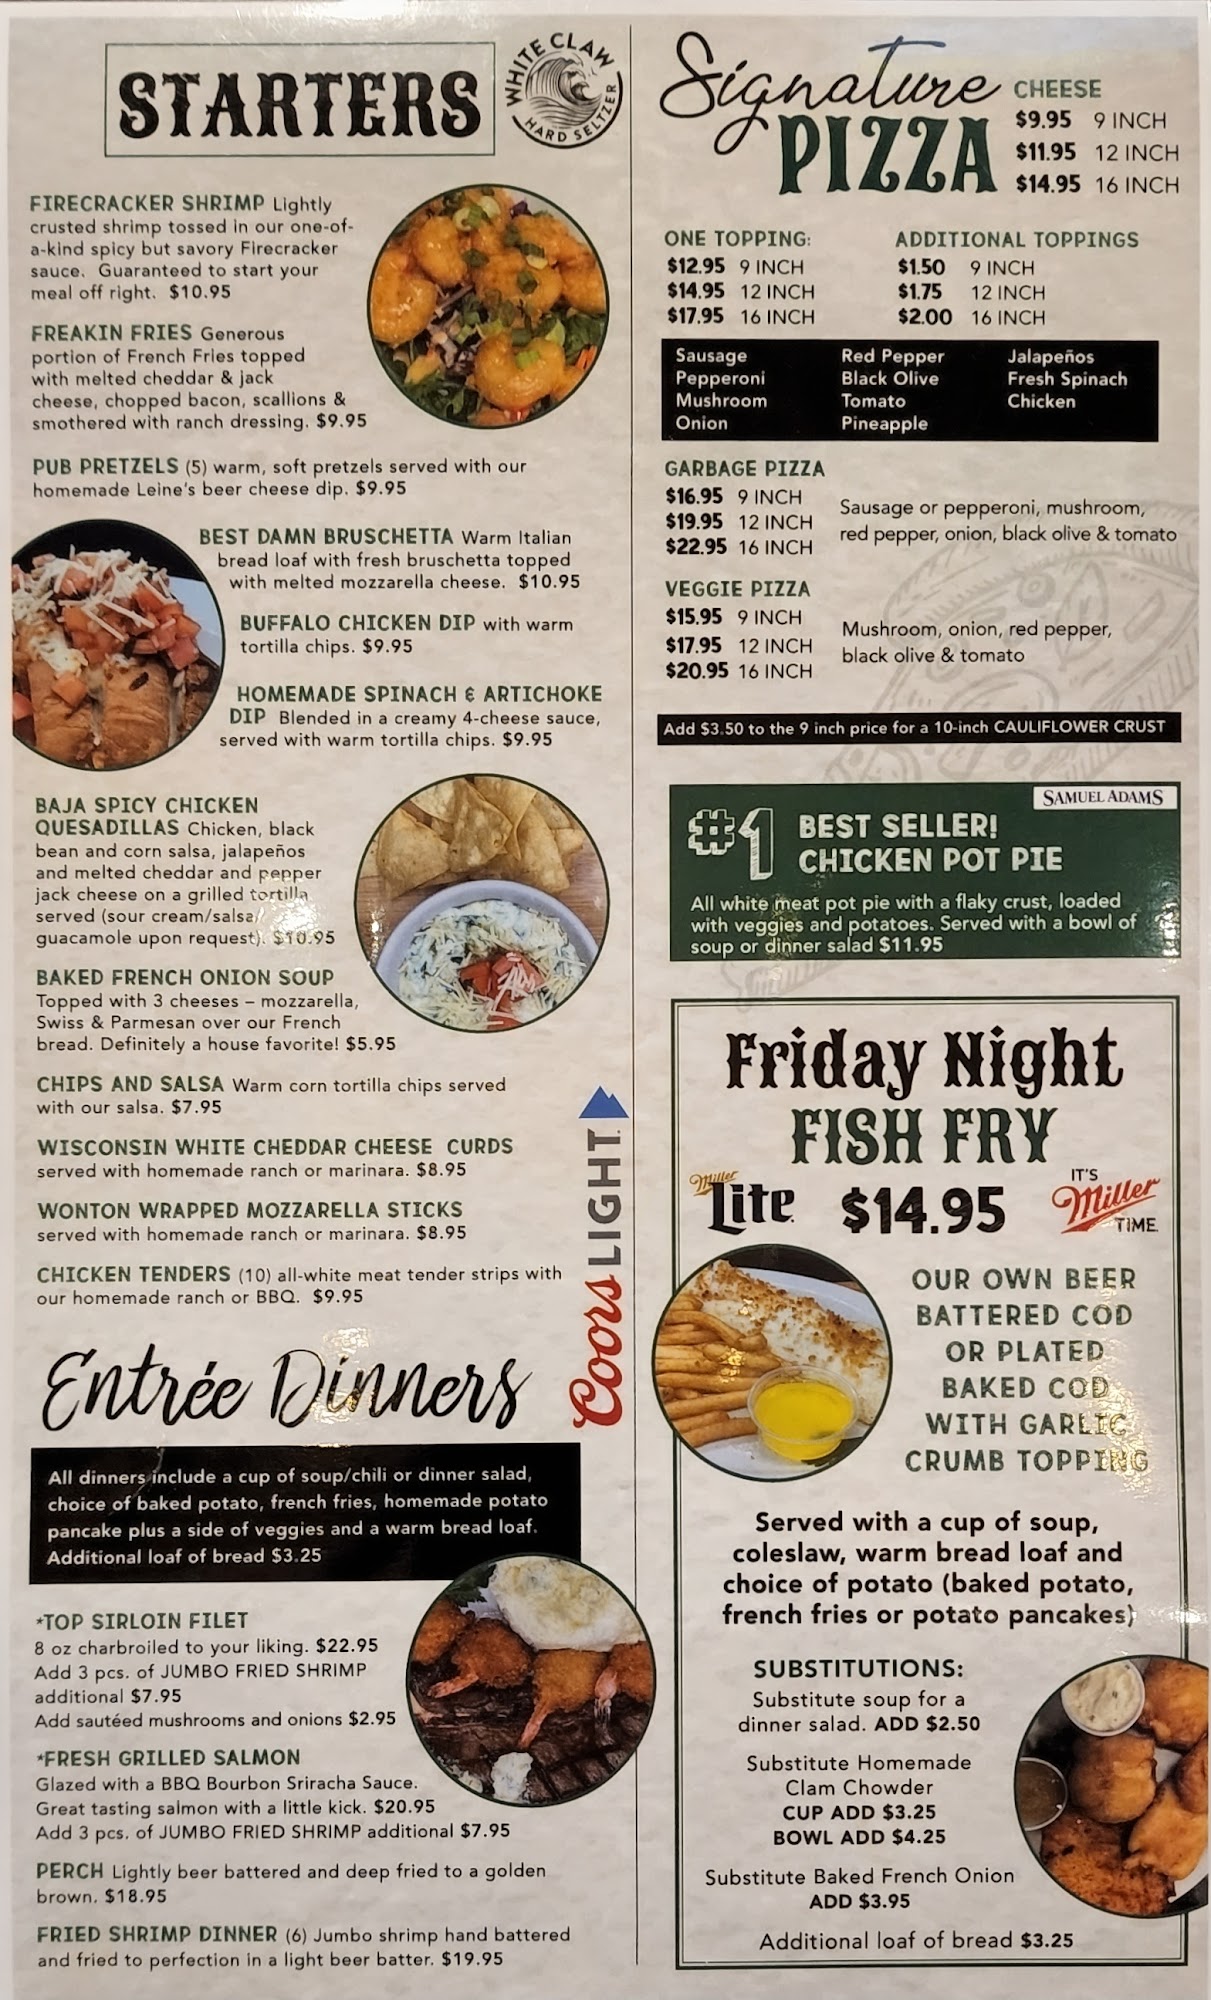 STARTERS
WHITE CLAW
HARD SELTZER
FIRECRACKER SHRIMP Lightly
crusted shrimp tossed in our one-of-
a-kind spicy but savory Firecracker
sauce. Guaranteed to start your
meal off right. $10.95
FREAKIN FRIES Generous
portion of French Fries topped
with melted cheddar & jack
cheese, chopped bacon, scallions &
smothered with ranch dressing. $9.95
PUB PRETZELS (5) warm, soft pretzels served with our
homemade Leine's beer cheese dip. $9.95
BEST DAMN BRUSCHETTA Warm Italian
bread loaf with fresh bruschetta topped
with melted mozzarella cheese. $10.95
BUFFALO CHICKEN DIP with warm
tortilla chips. $9.95
HOMEMADE SPINACH & ARTICHOKE
DIP Blended in a creamy 4-cheese sauce,
served with warm tortilla chips. $9.95
BAJA SPICY CHICKEN
QUESADILLAS Chicken, black
bean and corn salsa, jalapeños
and melted cheddar and pepper
jack cheese on a grilled tortilla
served (sour cream/salsa/
guacamole upon request). $10.95
BAKED FRENCH ONION SOUP
Topped with 3 cheeses – mozzarella,
Swiss & Parmesan over our French
bread. Definitely a house favorite! $5.95
CHIPS AND SALSA Warm corn tortilla chips served
with our salsa. $7.95
WISCONSIN WHITE CHEDDAR CHEESE CURDS
served with homemade ranch or marinara. $8.95
WONTON WRAPPED MOZZARELLA STICKS
served with homemade ranch or marinara. $8.95
CHICKEN TENDERS (10) all-white meat tender strips with
our homemade ranch or BBQ. $9.95
Coors LIGHT.
Entrée Dinners
All dinners include a cup of soup/chili or dinner salad,
choice of baked potato, french fries, homemade potato
pancake plus a side of veggies and a warm bread loaf.
Additional loaf of bread $3.25
*TOP SIRLOIN FILET
8 oz charbroiled to your liking. $22.95
Add 3 pcs. of JUMBO FRIED SHRIMP
additional $7.95
Add sautéed mushrooms and onions $2.95
*FRESH GRILLED SALMON
Glazed with a BBQ Bourbon Sriracha Sauce.
Great tasting salmon with a little kick. $20.95
Add 3 pcs. of JUMBO FRIED SHRIMP additional $7.95
PERCH Lightly beer battered and deep fried to a golden
brown. $18.95
FRIED SHRIMP DINNER (6) Jumbo shrimp hand battered
and fried to perfection in a light beer batter. $19.95
Signature
PIZZA
CHEESE
$9.95 9 INCH
$11.95 12 INCH
$14.95 16 INCH
ONE TOPPING:
$12.95 9 INCH
$14.95 12 INCH
$17.95 16 INCH
ADDITIONAL TOPPINGS
$1.50 9 INCH
$1.75 12 INCH
$2.00 16 INCH
Sausage
Pepperoni
Mushroom
Onion
Red Pepper
Black Olive
Tomato
Pineapple
Jalapeños
Fresh Spinach
Chicken
GARBAGE PIZZA
$16.95 9 INCH
$19.95 12 INCH
$22.95 16 INCH
Sausage or pepperoni, mushroom,
red pepper, onion, black olive & tomato
VEGGIE PIZZA
$15.95 9 INCH
$17.95 12 INCH
$20.95 16 INCH
Mushroom, onion, red pepper,
black olive & tomato
Add $3.50 to the 9 inch price for a 10-inch CAULIFLOWER CRUST
SAMUEL ADAMS
#1
BEST SELLER!
CHICKEN POT PIE
All white meat pot pie with a flaky crust, loaded
with veggies and potatoes. Served with a bowl of
soup or dinner salad $11.95
Friday Night
FISH FRY
Miller
Lite
$14.95
IT'S
Miller
TIME.
OUR OWN BEER
BATTERED COD
OR PLATED
BAKED COD
WITH GARLIC
CRUMB TOPPING
Served with a cup of soup,
coleslaw, warm bread loaf and
choice of potato (baked potato,
french fries or potato pancakes)
SUBSTITUTIONS:
Substitute soup for a
dinner salad. ADD $2.50
Substitute Homemade
Clam Chowder
CUP ADD $3.25
BOWL ADD $4.25
Substitute Baked French Onion
ADD $3.95
Additional loaf of bread $3.25